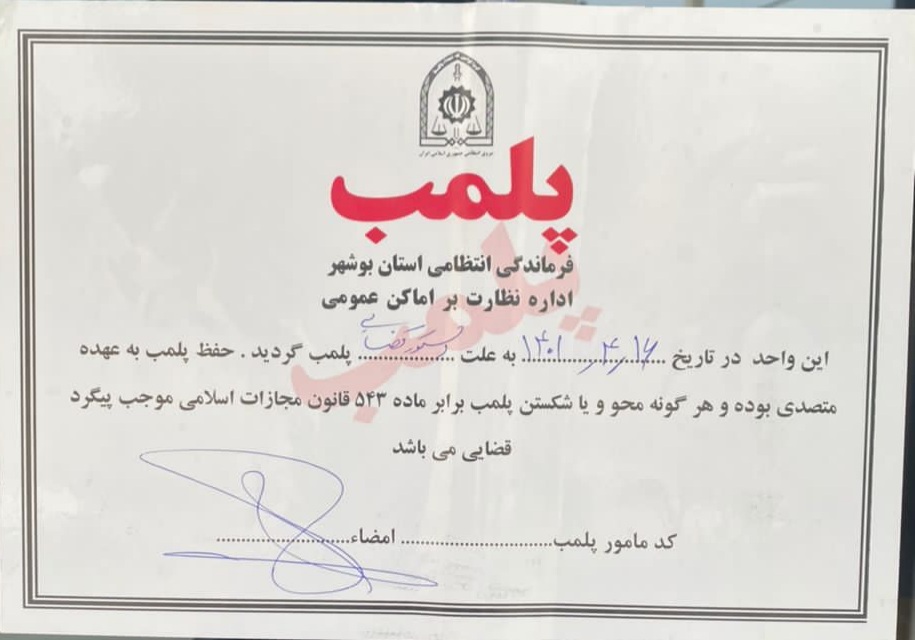 نیروی انتظامی جمهوری اسلامی ایران
پلمب
پلمب
فرماندگی انتظامی استان بوشهر
اداره نظارت بر اماکن عمومی
این واحد در تاریخ ۱۴۰۱/۴/۱۶ به علت دستور قضایی پلمب گردید . حفظ پلمب به عهده
متصدی بوده و هر گونه محو و یا شکستن پلمب برابر ماده ۵۴۳ قانون مجازات اسلامی موجب پیگرد
قضایی می باشد
کد مامور پلمب........................... امضاء........................